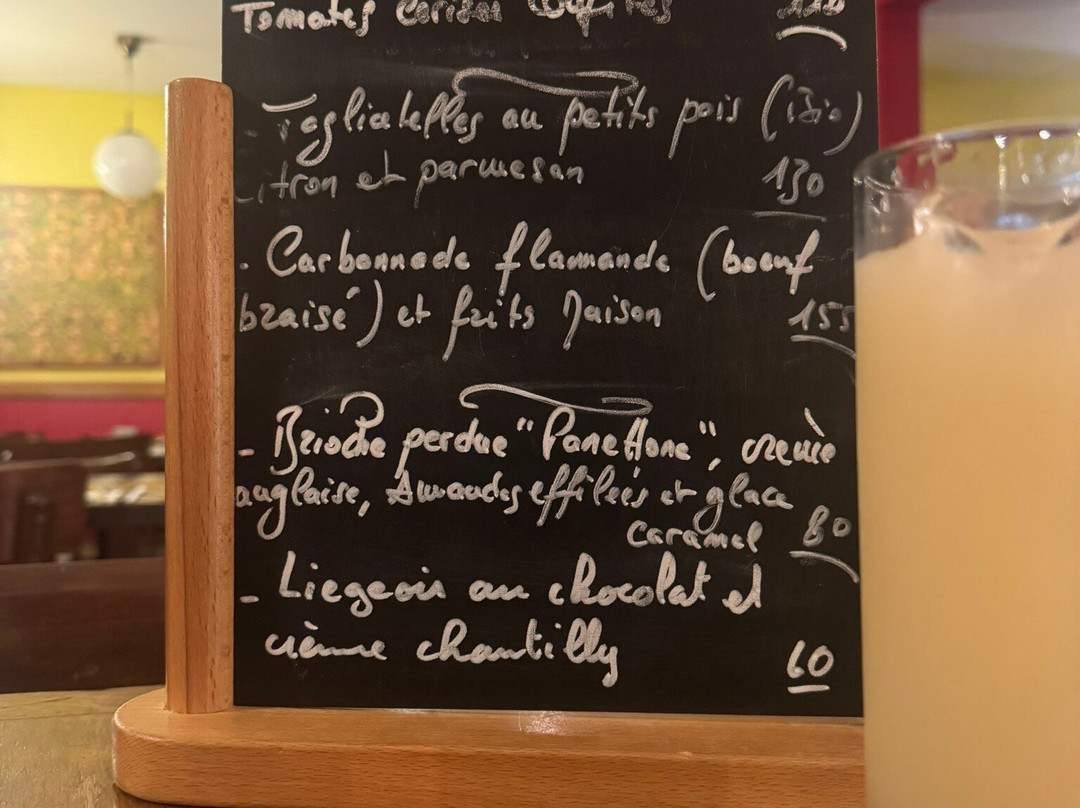 Tomates cerises confites
- Tagliatelles au petits pois (Bio)
citron et parmesan 130
- Carbonnade flamande (boeuf
braisé) et frits Maison 155
- Brioche perdue "Panettone", crème
anglaise, Amandes effilées et glace
caramel 80
- Liegeois au chocolat et
crème chantilly 60